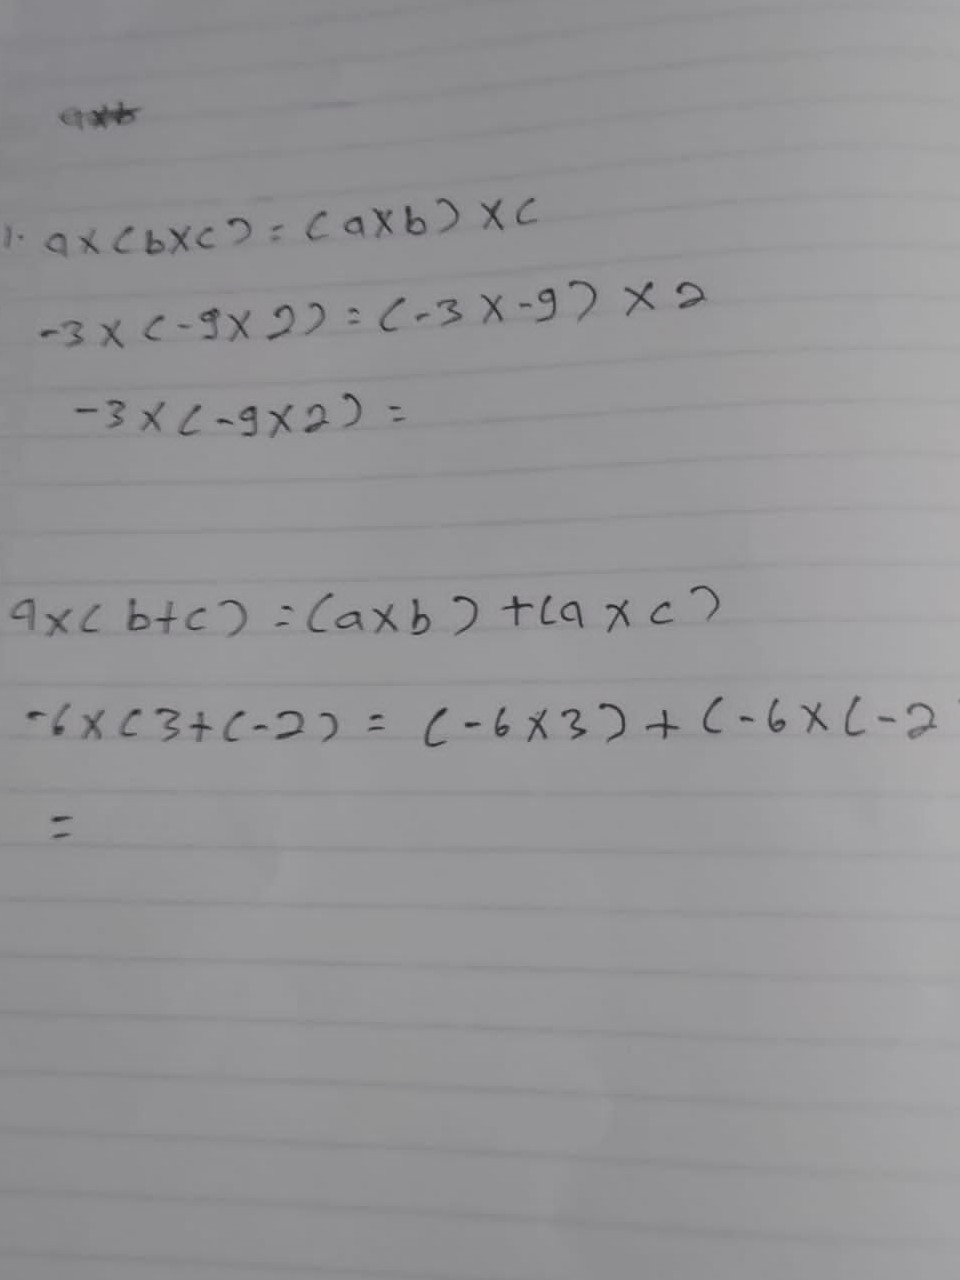 1. a×(b×c)=(a×b)×c
-3×(-9×2)=(-3×-9)×2
-3×(-9×2)=
a×(b+c)=(a×b)+(a×c)
-6×(3+(-2)=(-6×3)+(-6×(-2
=